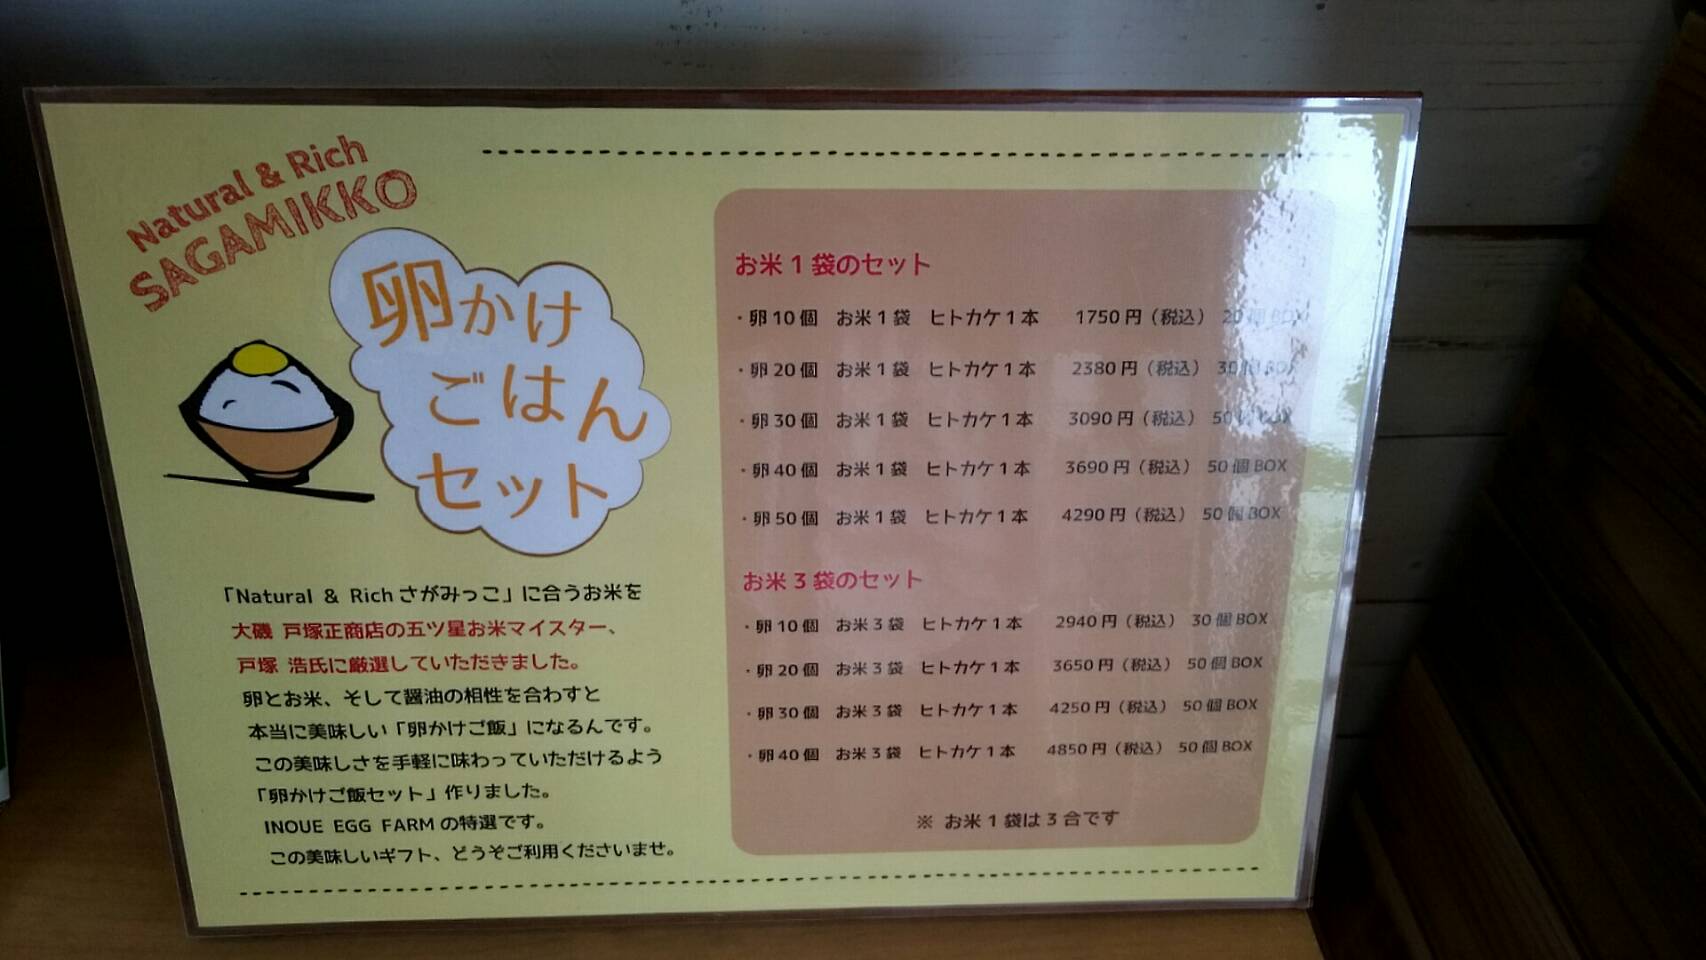 Natural & Rich
SAGAMIKKO
卵かけ
ごはん
セット
「Natural & Rich さがみっこ」に合うお米を
大磯 戸塚正商店の五ツ星お米マイスター、
戸塚 浩氏に厳選していただきました。
卵とお米、そして醤油の相性を合わすと
本当に美味しい「卵かけご飯」になるんです。
この美味しさを手軽に味わっていただけるよう
「卵かけご飯セット」作りました。
INOUE EGG FARMの特選です。
この美味しいギフト、どうぞご利用くださいませ。
お米1袋のセット
・卵10個 お米1袋 ヒトカケ1本 1750円（税込） 20個BOX
・卵20個 お米1袋 ヒトカケ1本 2380円（税込） 30個BOX
・卵30個 お米1袋 ヒトカケ1本 3090円（税込） 50個BOX
・卵40個 お米1袋 ヒトカケ1本 3690円（税込） 50個BOX
・卵50個 お米1袋 ヒトカケ1本 4290円（税込） 50個BOX
お米3袋のセット
・卵10個 お米3袋 ヒトカケ1本 2940円（税込） 30個BOX
・卵20個 お米3袋 ヒトカケ1本 3650円（税込） 50個BOX
・卵30個 お米3袋 ヒトカケ1本 4250円（税込） 50個BOX
・卵40個 お米3袋 ヒトカケ1本 4850円（税込） 50個BOX
※ お米1袋は3合です